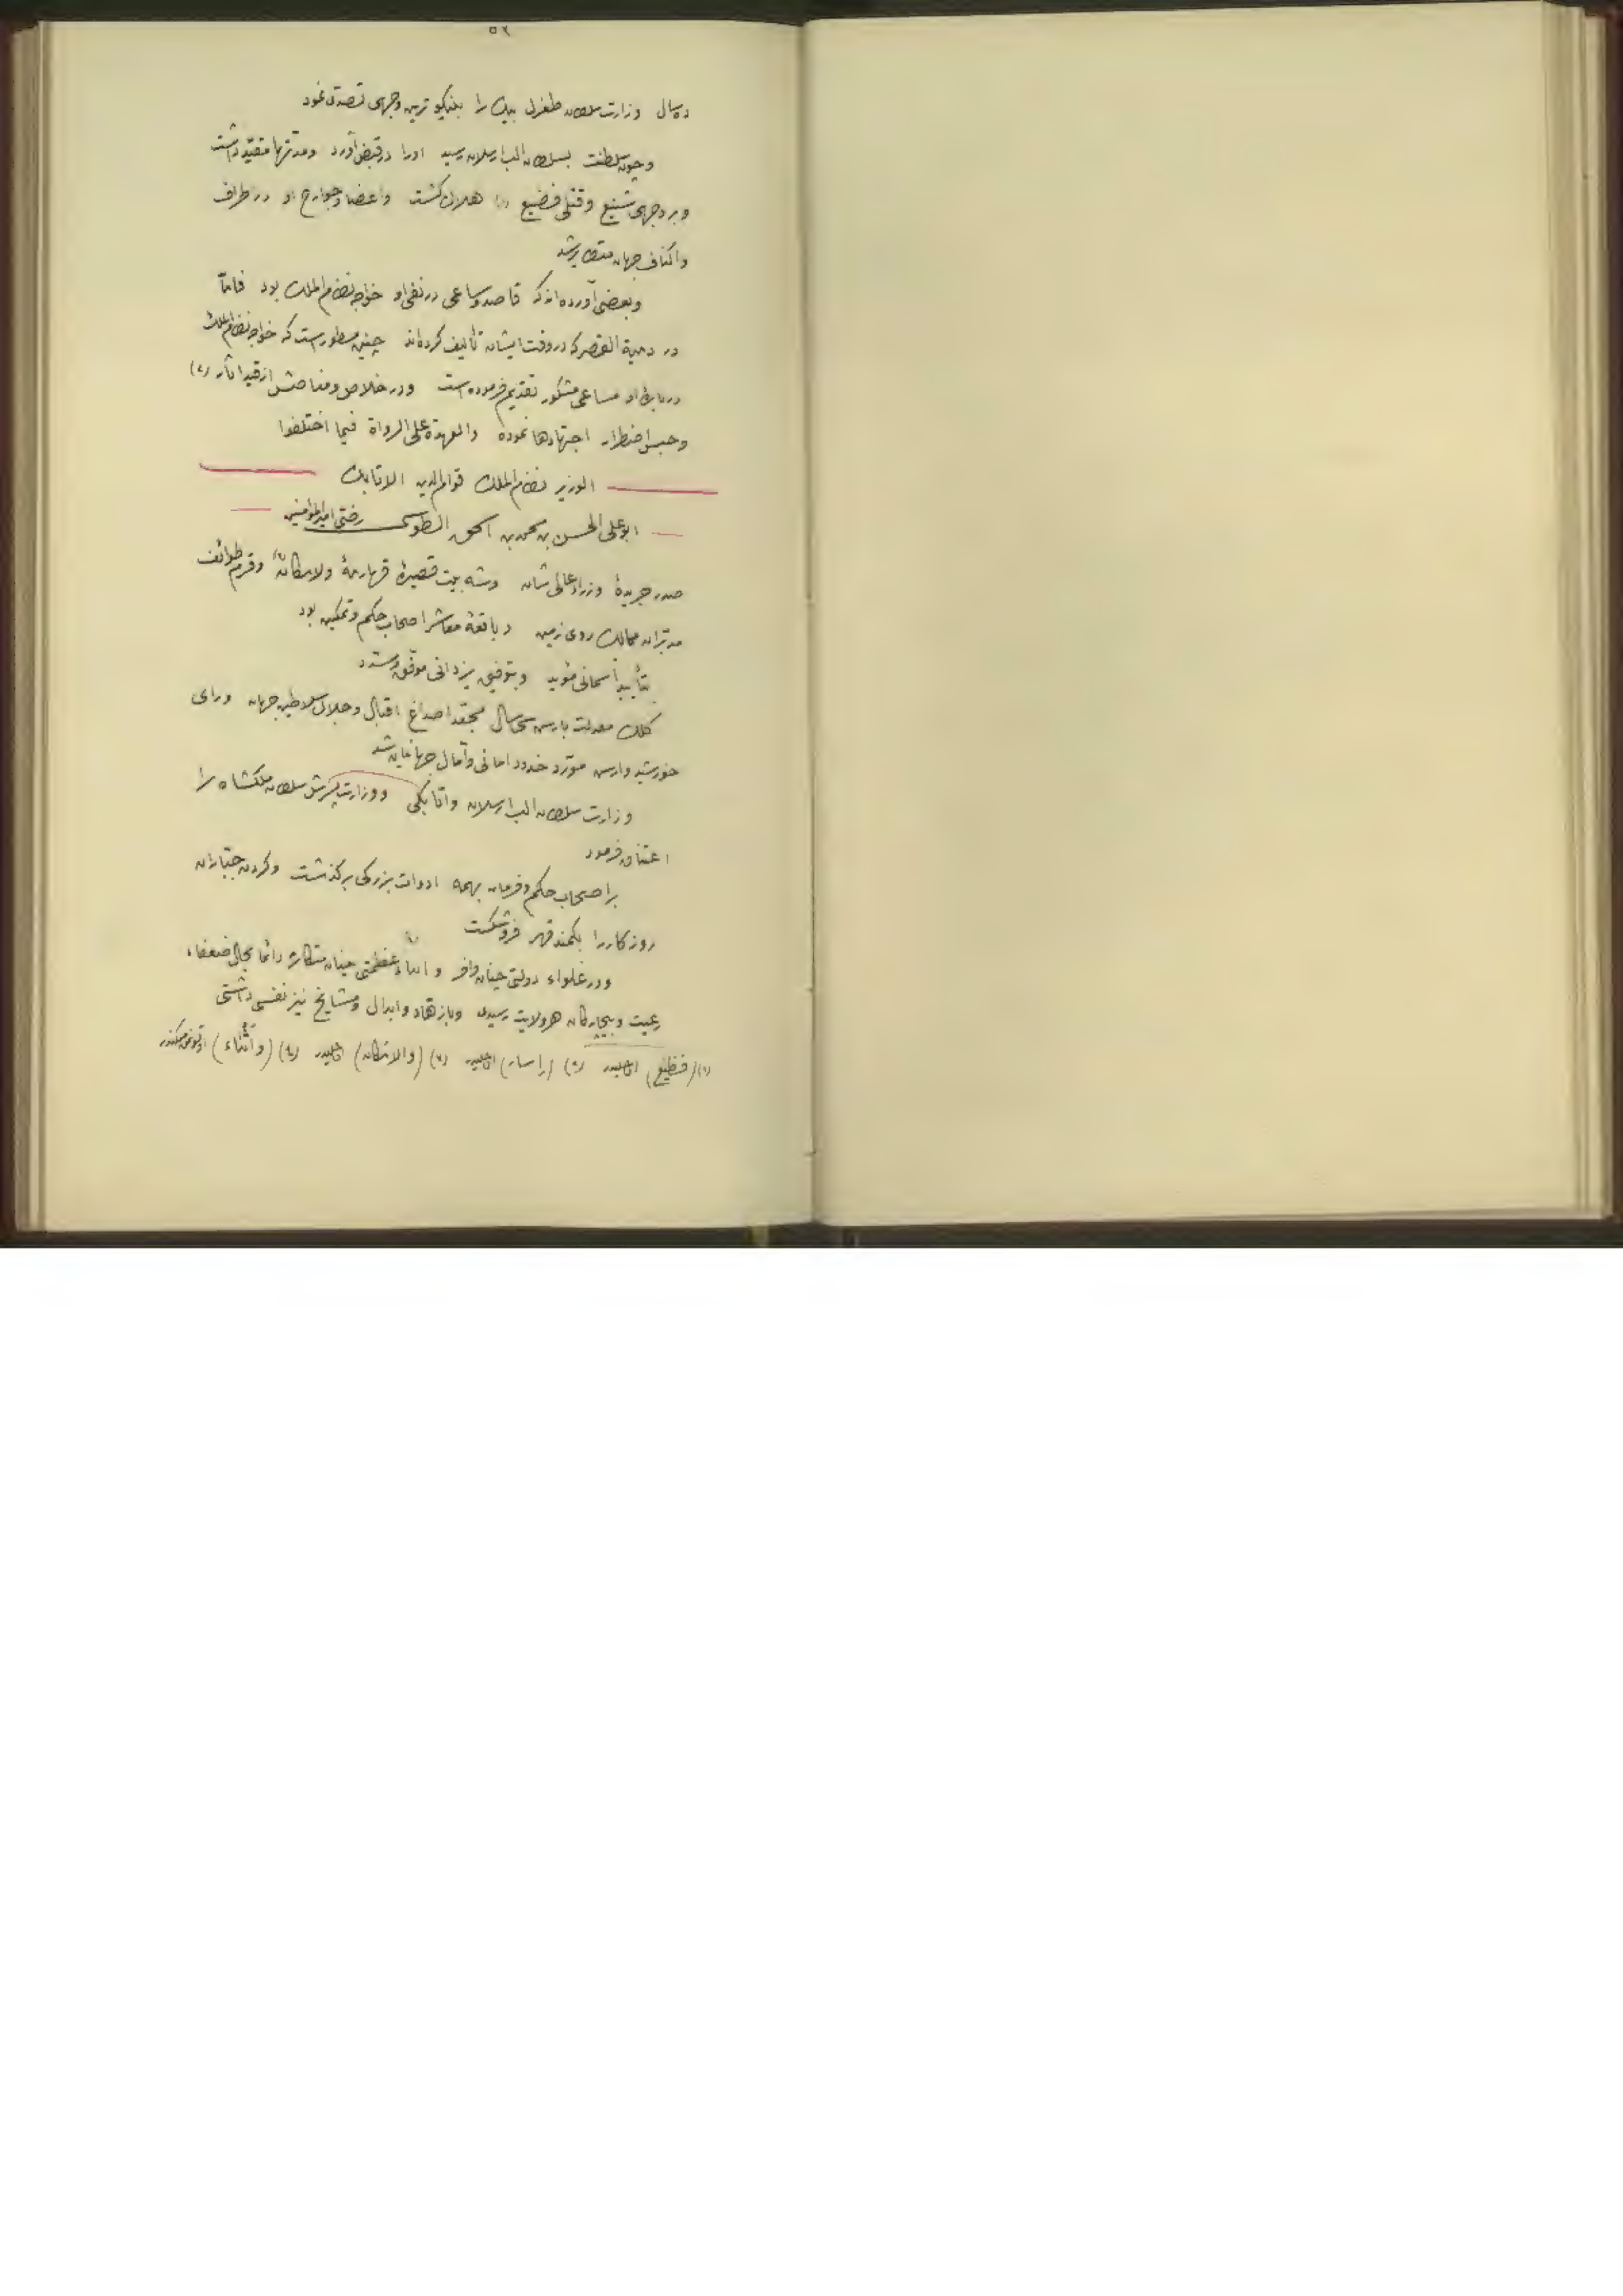 ٥٢
ده سال وزارت سلطان طغرل بیک را بنیکوترین وجهی تصدی نمود
وچون سلطنت بسلطان الب ارسلان رسید اورا در قبض آورد ومدتها مقید داشت
وبر وجهی شنیع وقتلی فضیع (١) هلاک کشت واعضا وجوارح او در اطراف
واکناف جهان متطایر شد
وبعضی آورده اند که قاصد وساعی در نفی او خواجه نظام الملک بود فامّا
در دمیة القصر که در وقت ایشان تألیف کرده اند چنین مسطورست که خواجه نظام الملک
درباره او مساعی مشکور تقدیم فرموده است ودر خلاص ومناصش از قید اثار (٢)
وحبس اضطرار اجتهادها نموده والعهدة علی الرواة فیما اختلفوا
الوزیر نظام الملک قوام الدین الاتابک
ابو علی الحسن بن محمد بن اسحق الطوسی رضی امیر المؤمنین
صدر جریدهٔ وزراء عالی شان وشه بیت قصیدهٔ قهارمهٔ وقرم طوائف
مدبّران ممالک روی زمین وباقعهٔ معاشر اصحاب حکم وتمکین بود
بتأیید آسمانی مؤید وبتوفیق یزدانی موفق ومسدد
کلک معدلت بارس سی سال مجعّد اصداغ اقبال وجلال سلاطین جهان ورای
خورشید وارس مورّد خدود امانی وآمال جهانیان شد
وزارت سلطان الب ارسلان واتابکی ووزارت پسرش سلطان ملکشاه را
اعتناق فرمود
بر اصحاب حکم وفرمان بهمه ادوات بزرکی برکذشت وکردن جبّاران
روزکار را بکمند قهر فروشکست
ودر غلواء دولتی چنان وافر و اثناء عظمتی چنان متکاثر دائما بحال ضعفاء
رعیت وبیچارکان هر ولایت رسیدی وباز هّاد وابدال ومشایخ نیز نفسی داشتی
(١) (فظیع) (٢) (اسار) (٣) (٤) (واثناء)